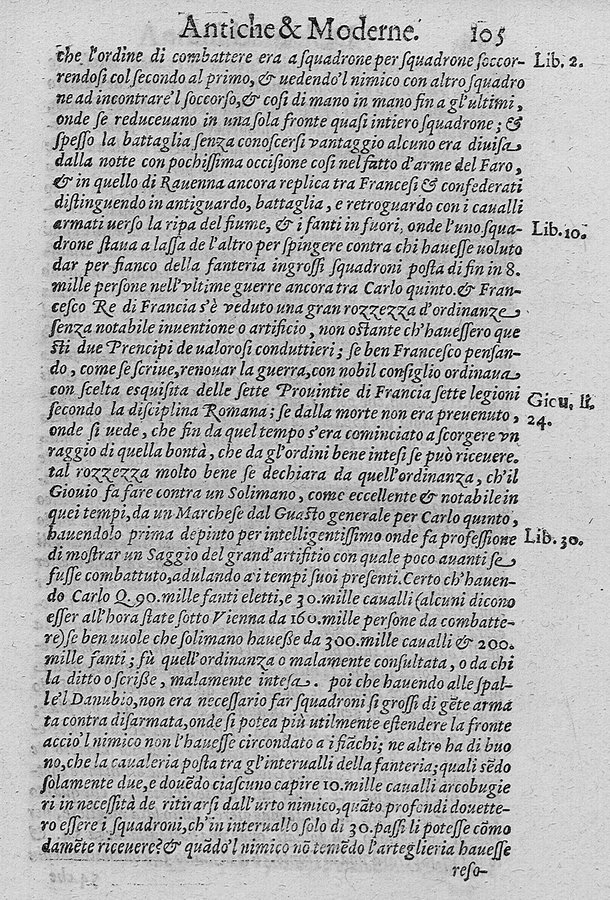 Antiche & Moderne. 105
che l'ordine di combattere era a squadrone per squadrone soccor- Lib. 2.
rendosi col secondo al primo, & uedendo'l nimico con altro squadro
ne ad incontrare'l soccorso, & cosi di mano in mano fin a gl'ultimi,
onde se reduceuano in una sola fronte quasi intiero squadrone; &
spesso la battaglia senza conoscersi vantaggio alcuno era diuisa
dalla notte con pochissima occisione cosi nel fatto d'arme del Faro,
& in quello di Rauenna ancora replica tra Francesi & confederati
distinguendo in antiguardo, battaglia, e retroguardo con i caualli
armati uerso la ripa del fiume, & i fanti in fuori, onde l'uno squa- Lib. 10.
drone staua a lassa de l'altro per spingere contra chi hauesse uoluto
dar per fianco della fanteria ingrossi squadroni posta di fin in 8.
mille persone nell'vltime guerre ancora tra Carlo quinto. & Fran-
cesco Re di Francia s'è veduto una gran rozzezza d'ordinanze
senza notabile inuentione o artificio, non ostante ch'hauessero que
sti due Prencipi de valorosi conduttieri; se ben Francesco pensan-
do, come se scriue, renouar la guerra, con nobil consiglio ordinaua
con scelta esquisita delle sette Prouintie di Francia sette legioni Giou. li.
secondo la disciplina Romana; se dalla morte non era preuenuto, 24.
onde si vede, che fin da quel tempo s'era cominciato a scorgere vn
raggio di quella bontà, che da gl'ordini bene intesi se può riceuere.
tal rozzezza molto bene se dechiara da quell'ordinanza, ch'il
Giouio fa fare contra un Solimano, come eccellente & notabile in
quei tempi, da un Marchese dal Guasto generale per Carlo quinto,
hauendolo prima depinto per intelligentissimo onde fa professione Lib. 30.
di mostrar un Saggio del grand'artifitio con quale poco auanti se
fusse combattuto, adulando a i tempi suoi presenti. Certo ch'hauen-
do Carlo Q. 90. mille fanti eletti, e 30. mille caualli (alcuni dicono
esser all'hora state sotto Vienna da 160. mille persone da combatte-
re) se ben uuole che solimano hauesse da 300. mille caualli & 200.
mille fanti; fù quell'ordinanza o malamente consultata, o da chi
la ditto o scrisse, malamente intesa. poi che hauendo alle spal-
le'l Danubio, non era necessario far squadroni si grossi di gēte arma
ta contra disarmata, onde si potea più utilmente estendere la fronte
acciò'l nimico non l'hauesse circondato a i fiāchi; ne altro ha di buo
no, che la caualeria posta tra gl'interualli della fanteria; quali sēdo
solamente due, e douēdo ciascuno capire 10. mille caualli arcobugie
ri in necessità de ritirarsi dall'urto nimico, quāto profondi douette-
ro essere i squadroni, ch'in interuallo solo di 30. passi li potesse cōmo
damēte riceuere? & quādo'l nimico nō temēdo l'arteglieria hauesse
reso-